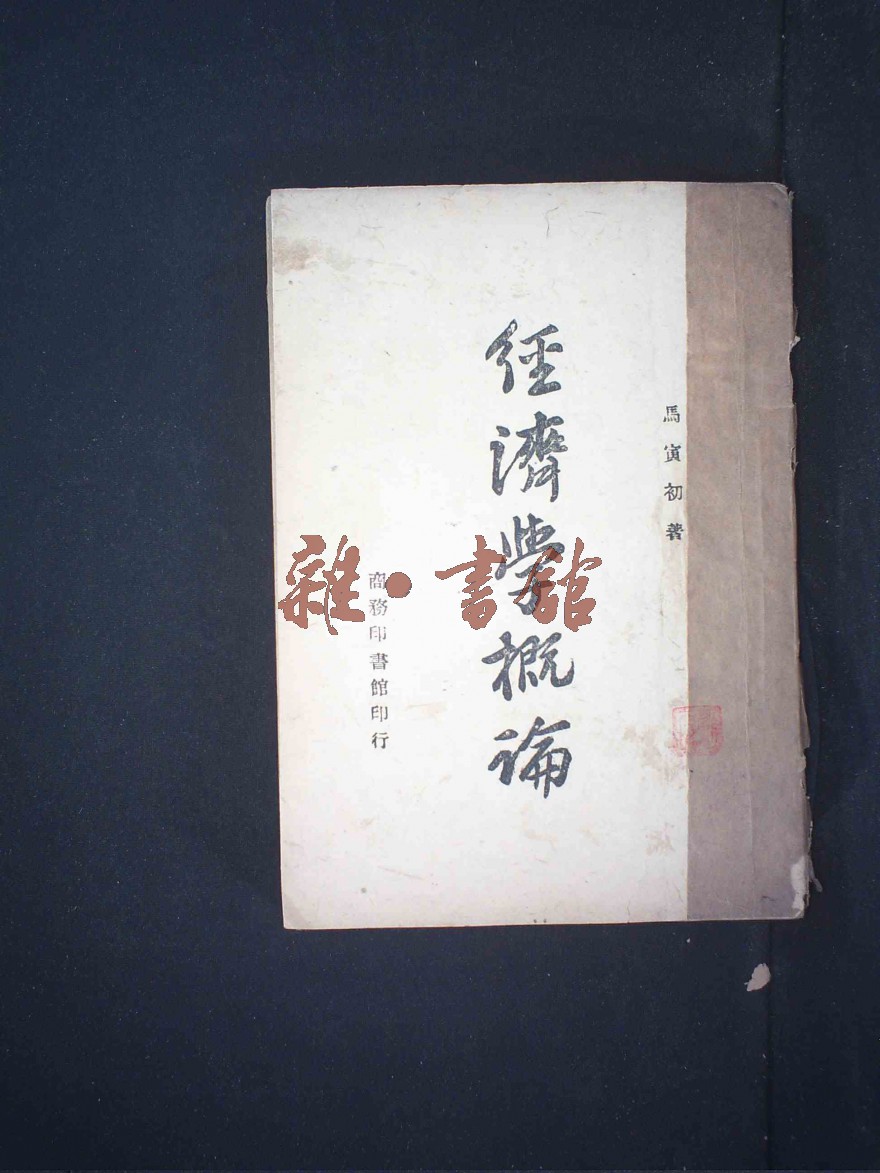 馬寅初著
經濟學概論
商務印書館印行
雜·書館